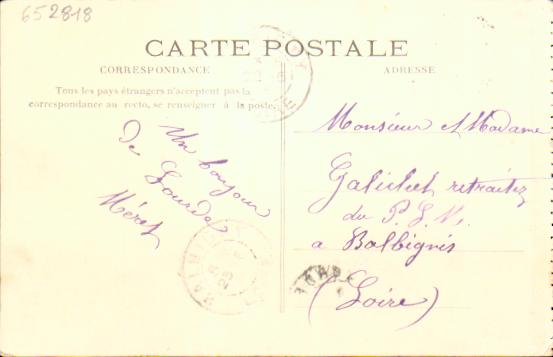 652818
CARTE POSTALE
CORRESPONDANCE
Tous les pays étrangers n'acceptent pas la
correspondance au recto, se renseigner à la poste.
Un bonjour
de Lourdes
ADRESSE
Monsieur et Madame
retraitez
du P.L.M.
a Balbignis
(Loire)